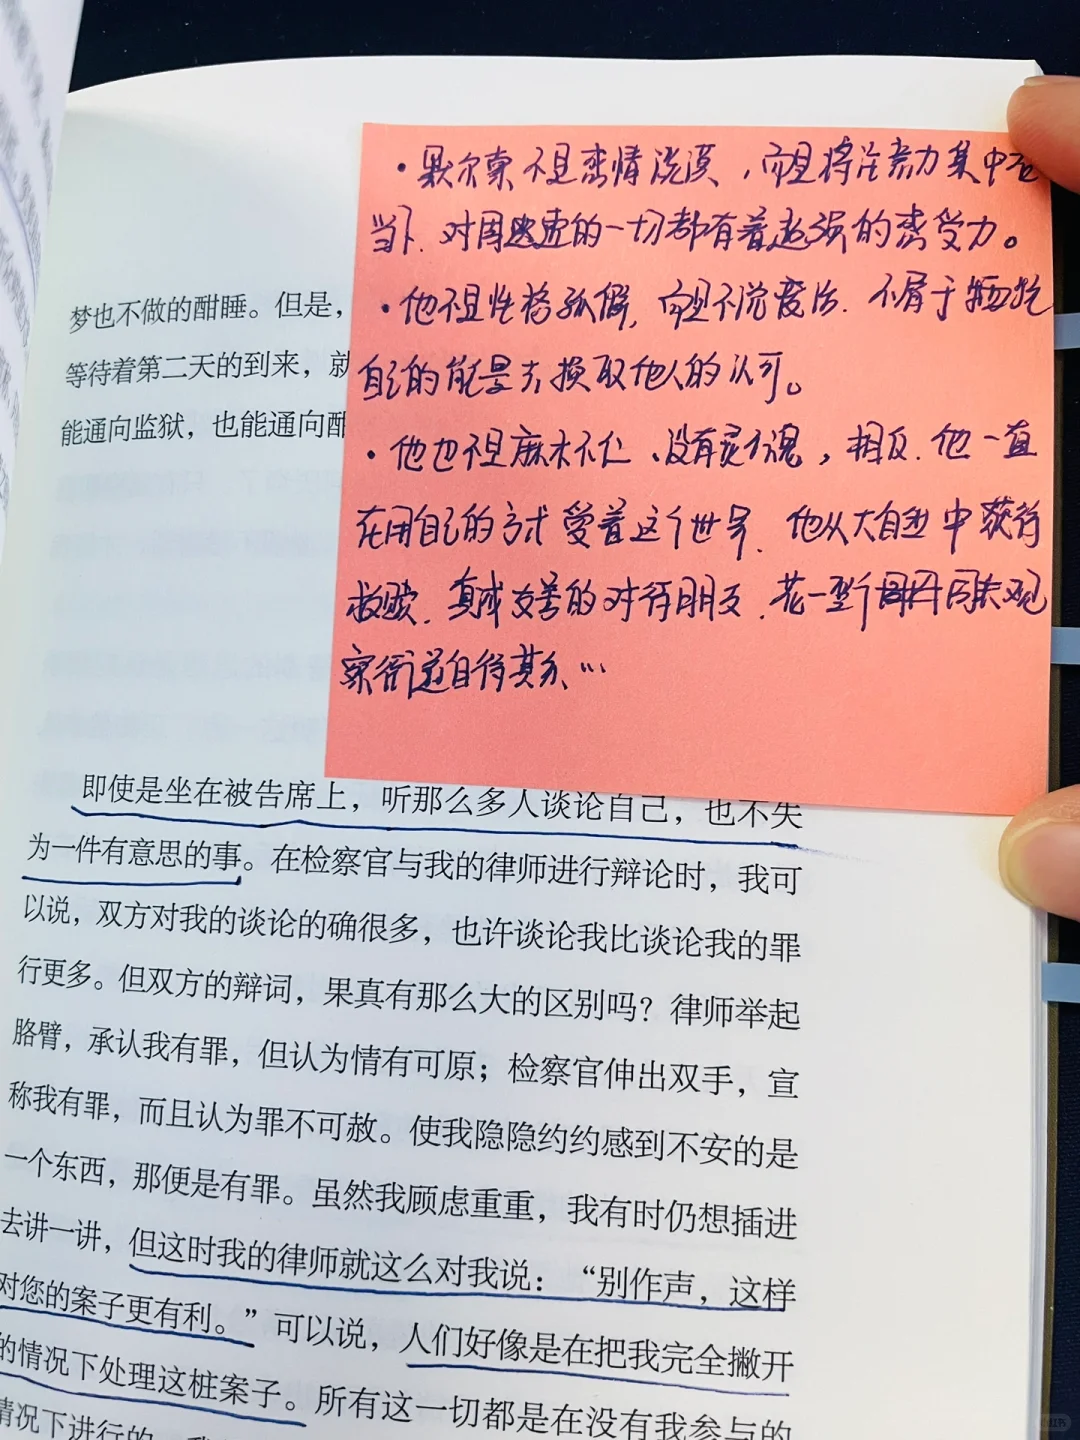 ·默尔索不是寡情淡漠，而是将注意力集中在
当下，对周遭的一切都有着超强的感受力。
·他不是性格孤僻，而是不说废话，不屑于牺牲
自己的能量去换取他人的认可。
·他也不是麻木不仁、没有灵魂，相反，他一直
在用自己的方式爱着这个世界，他从大自然中获得
救赎，真诚友善的对待朋友，花一整个周末观
察街道自得其乐…
梦也不做的酣睡。但是，
等待着第二天的到来，就
能通向监狱，也能通向酣
即使是坐在被告席上，听那么多人谈论自己，也不失
为一件有意思的事。在检察官与我的律师进行辩论时，我可
以说，双方对我的谈论的确很多，也许谈论我比谈论我的罪
行更多。但双方的辩词，果真有那么大的区别吗？律师举起
胳臂，承认我有罪，但认为情有可原；检察官伸出双手，宣
称我有罪，而且认为罪不可赦。使我隐隐约约感到不安的是
一个东西，那便是有罪。虽然我顾虑重重，我有时仍想插进
去讲一讲，但这时我的律师就这么对我说：“别作声，这样
对您的案子更有利。”可以说，人们好像是在把我完全撇开
的情况下处理这桩案子。所有这一切都是在没有我参与的
情况下进行的。我